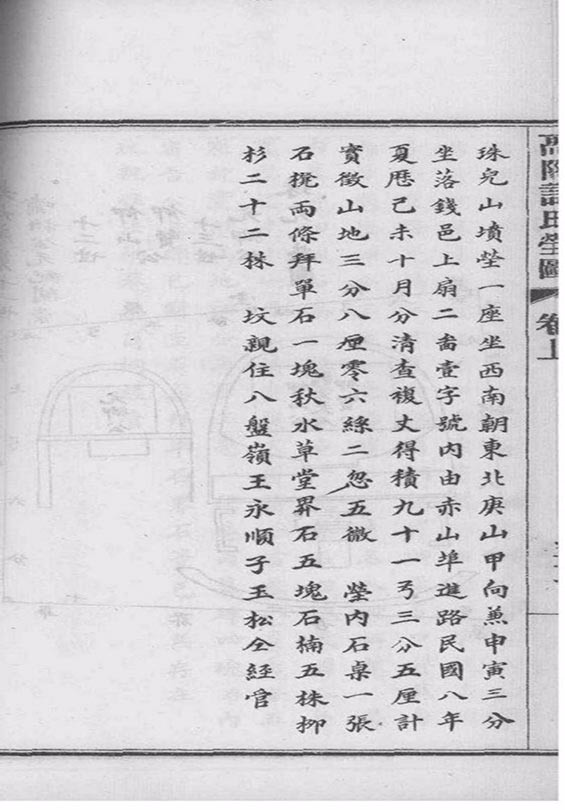 高陽許氏塋圖 卷上
珠兒山墳塋一座坐西南朝東北庚山甲向兼申寅三分
坐落錢邑上扇二啚壹字號內由赤山埠進路民國八年
夏厯己未十月分清查複丈得積九十一弓三分五厘計
實徵山地三分八厘零六絲二忽五微 塋內石桌一張
石櫈兩條拜單石一塊秋水草堂界石五塊石楠五株柳
杉二十二株 坟親住八盤嶺王永順子玉松仝經管